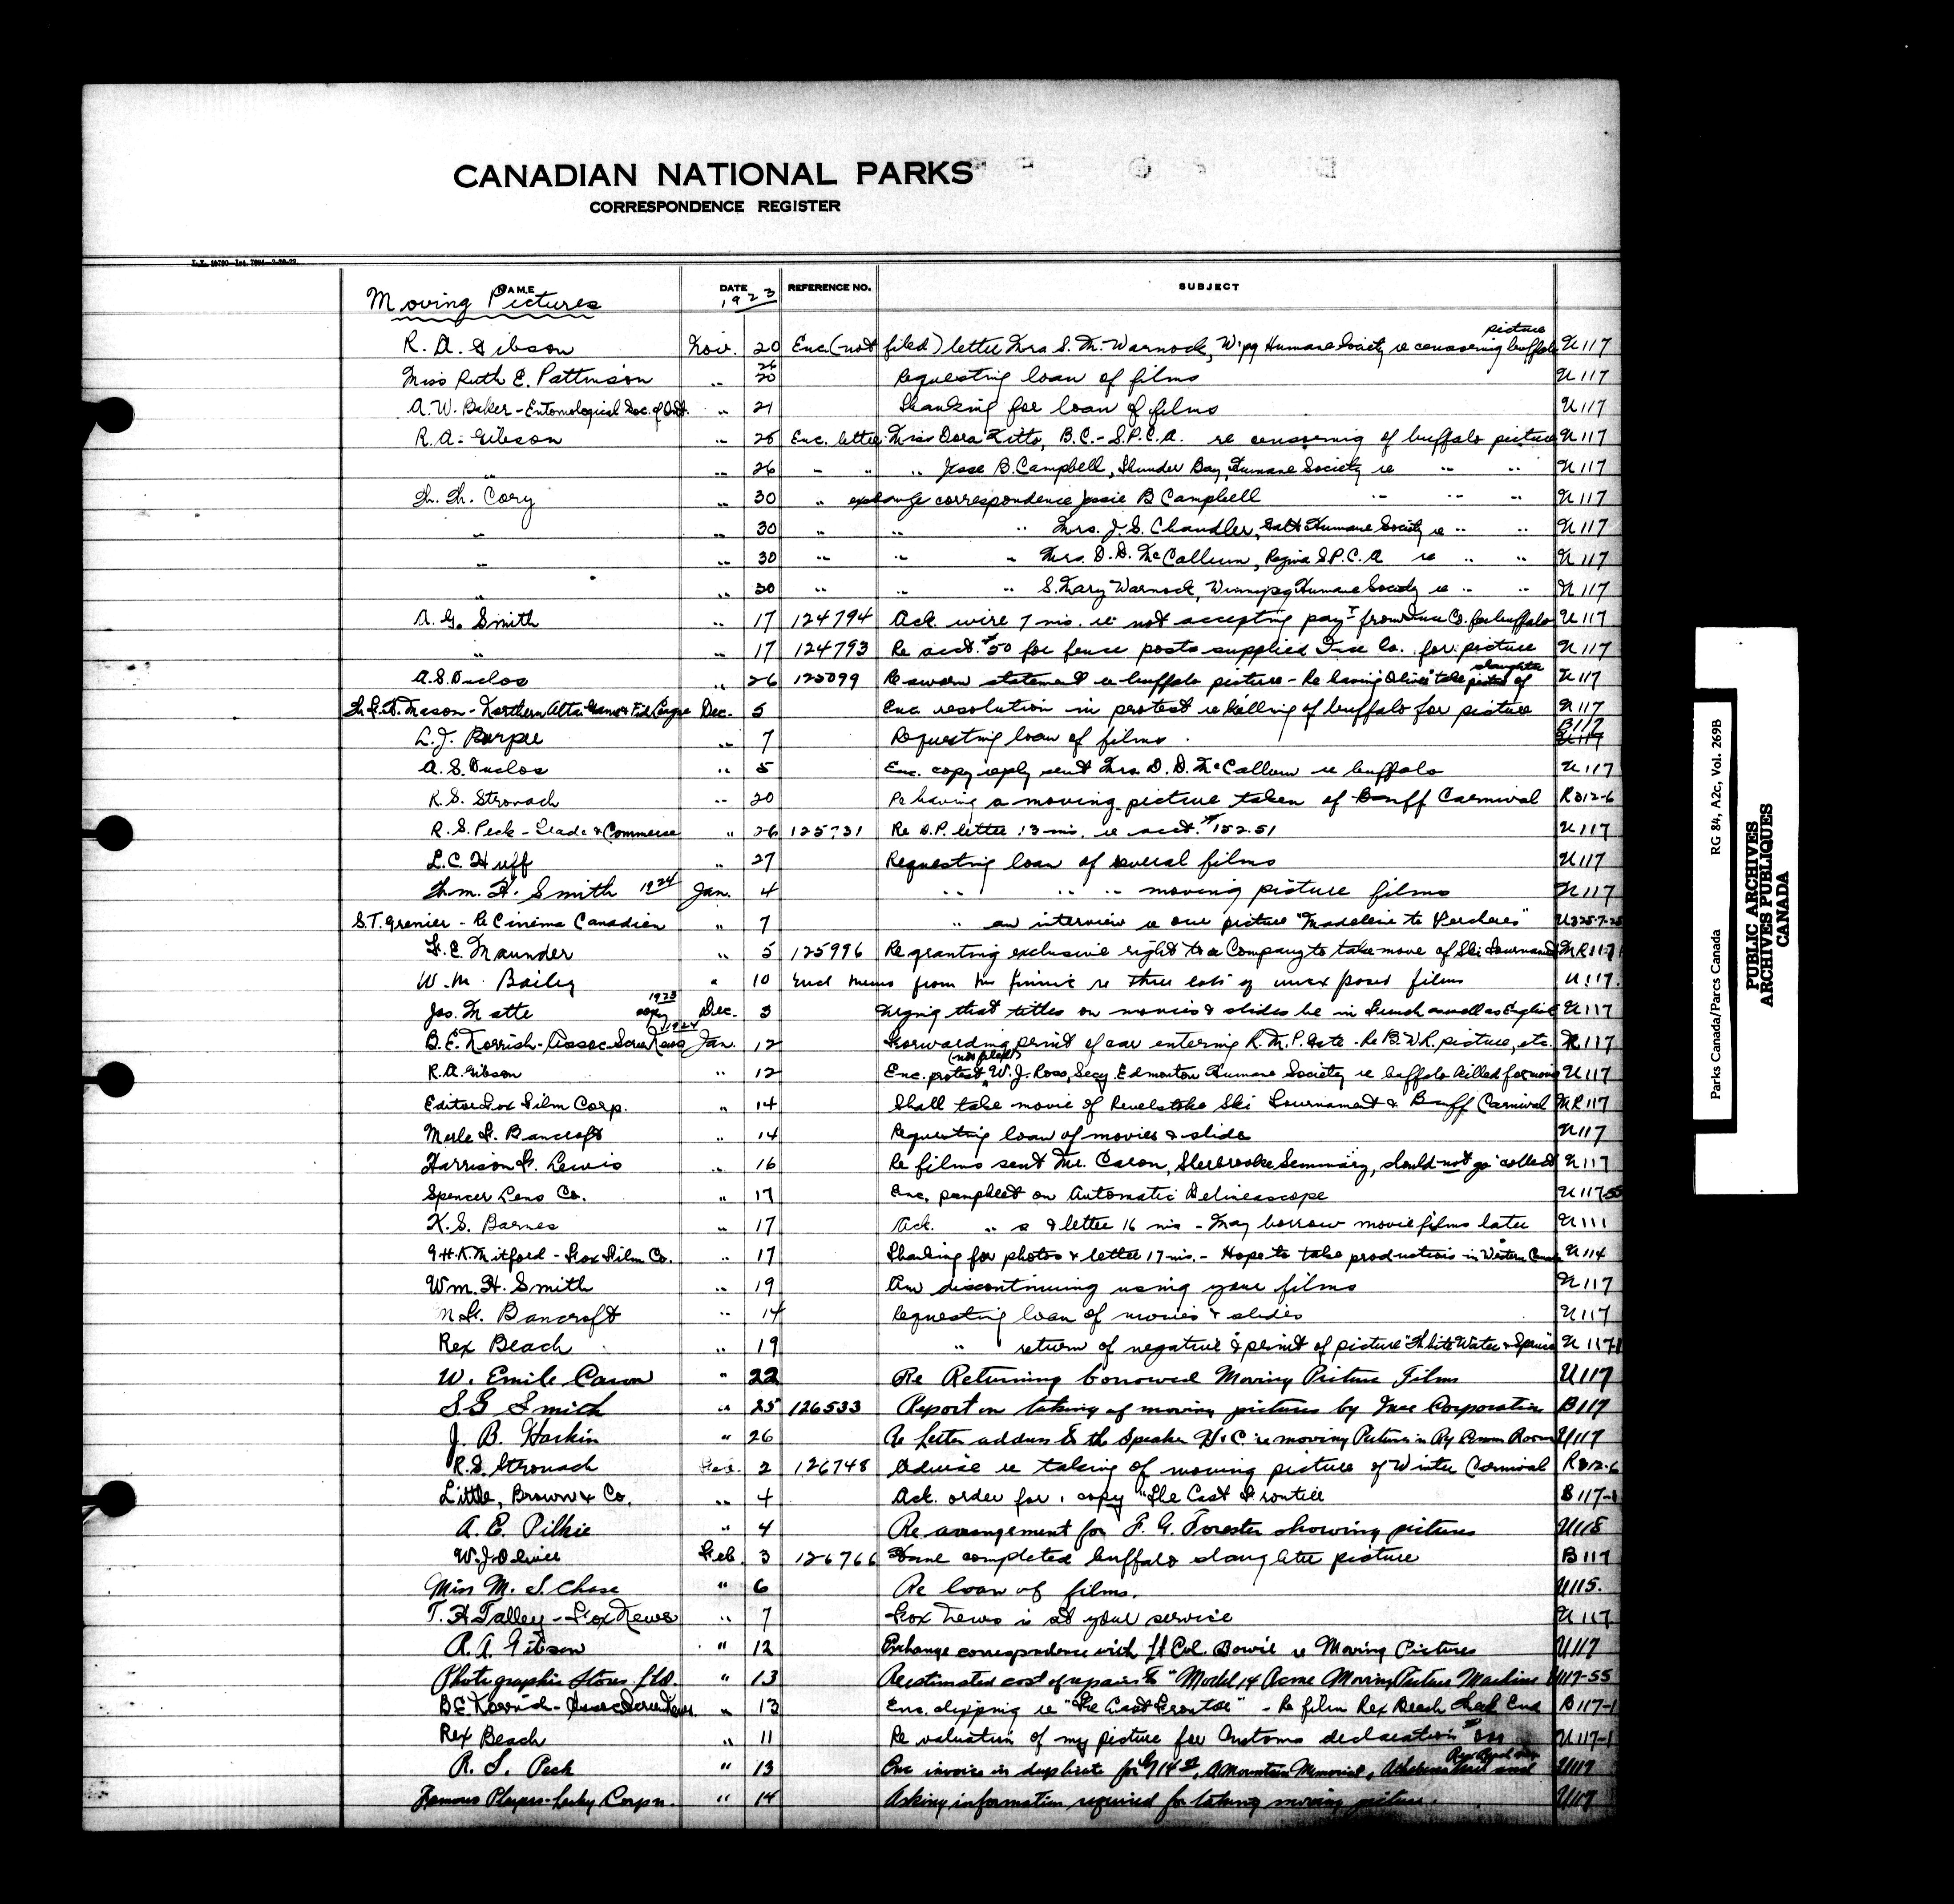 CANADIAN NATIONAL PARKS
CORRESPONDENCE REGISTER
NAME DATE REFERENCE NO. SUBJECT
Moving Pictures 1923
R. A. Gibson Nov. 20 Enc (not filed) letter Mrs S. M. Warnock, W'pg Humane Society re censoring buffalo picture U117
Miss Ruth E. Pattinson " 20 Requesting loan of films U117
A. W. Baker - Entomological Soc. of Ont. " 21 Thanking for loan of films U117
R. A. Gibson " 26 Enc. letter Miss Dora Kitto, B.C. - S.P.C.A. re censoring of buffalo picture U117
" " 26 " " " Jesse B. Campbell, Thunder Bay, Humane Society re " " U117
W. W. Cory " 30 " exchange correspondence Jessie B Campbell " " " U117
" " 30 " " " Mrs. J. S. Chandler, Galt Humane Society re " " U117
" " 30 " " " Mrs. D. D. McCallum, Regina S.P.C.A re " " U117
" " 30 " " " S. Mary Warnock, Winnipeg Humane Society re " " U117
A. G. Smith " 17 124794 Ack. wire 7 ins. re not accepting payt from Ince Co. for buffalo U117
" " 17 124793 Re acct. $50 for fence posts supplied Ince Co. for picture U117
A. S. Duclos " 26 125099 Re sworn statement re buffalo picture - Re having Oliver take picture of slaughter U117
Mason - Northern Alta. Game & Fish League Dec. 5 Enc resolution in protest re killing of buffalo for picture U117
L. J. Burpee " 7 Requesting loan of films. B117
A. S. Duclos " 5 Enc. copy reply sent Mrs. D. D. McCallum re buffalo U117
R. S. Stronach " 20 Re having a moving picture taken of Banff Carnival R312-6
R. S. Peck - Trade & Commerce " 26 125731 Re D.P. letter 13 ins. re acct. $152.51 U117
L. C. Huff " 27 Requesting loan of several films U117
Wm. H. Smith 1924 Jan. 4 " " " moving picture films U117
S. T. Grenier - Re Cinema Canadien " 7 " an interview re our picture "Madeleine de Vercheres" U325-7-25
F. E. Maunder " 5 125996 Re granting exclusive right to a Company to take move of Ski Tournament MR117
W. M. Bailey " 10 Encl memo from Mr Finnie re three lots of unexposed films U117.
Jos. Matte 1923 copy Dec. 3 Urging that titles on movies & slides be in French as well as English U117
B. E. Norrish - Assoc. Screen News 1924 Jan. 12 Forwarding print of car entering R. M. P. Gate - Re B. W. R. picture, etc. R117
R. A. Gibson " 12 Enc. protest (not filed) W. J. Ross, Secy. Edmonton Humane Society re buffalo killed for movie U117
Editor Fox Film Corp. " 14 Shall take movie of Revelstoke Ski Tournament & Banff Carnival MR117
Merle F. Bancroft " 14 Requesting loan of movies & slides U117
Harrison F. Lewis " 16 Re films sent Mr. Caron, Sherbrooke Seminary, should not go "collect" U117
Spencer Lens Co. " 17 Enc. pamphlet on Automatic Delineascope U117-55
K. S. Barnes " 17 Ack. " s & letter 16 ins - May borrow movie films later U111
G. H. K. Mitford - Fox Film Co. " 17 Thanking for photos & letter 17 ins. - Hope to take productions in Western Canada U114
Wm. H. Smith " 19 Am discontinuing using your films U117
M. F. Bancroft " 14 Requesting loan of movies & slides U117
Rex Beach " 19 " return of negative & print of picture "White Water & Spruce" U117-1
W. Emile Caron " 22 Re Returning borrowed Moving Picture Films U117
S. G Smith " 25 126533 Report on taking of moving pictures by Ince Corporation B117
J. B. Harkin " 26 Re letter address to the Speaker H of C re moving Pictures in Ry Comm Room U117
R. S. Stronach Feb. 2 126748 Advise re taking of moving picture of Winter Carnival R312-6
Little, Brown & Co. " 4 Ack. order for 1 copy "The Last Frontier B117-1
A. E. Pilkie " 4 Re arrangement for F. G. Forester showing pictures U118
W. J. Oliver Feb. 3 126766 Have completed buffalo slaughter picture B117
Miss M. S. Chase " 6 Re loan of films. U115.
T. H. Talley - Fox News " 7 Fox News is at your service U117
R. A. Gibson " 12 Exchange correspondence with Lt Col. Bowie re Moving Pictures U117
Photographic Stores Ltd. " 13 Re estimated cost of repairs to "Model 14 Acme Moving Picture Machine U117-55
B. E. Norrish - Assoc Screen News. " 13 Enc. clipping re "The Last Frontier" - Re film Rex Beach B117-1
Rex Beach " 11 Re valuation of my picture for Customs declaration U117-1
R. S. Peck " 13 Enc invoice in duplicate for A Mountain Memorial, U117
Famous Players-Lasky Corpn. " 14 Asking information required for taking moving picture. U117
RG 84, A2c, Vol. 269B
Parks Canada/Parcs Canada
PUBLIC ARCHIVES
ARCHIVES PUBLIQUES
CANADA